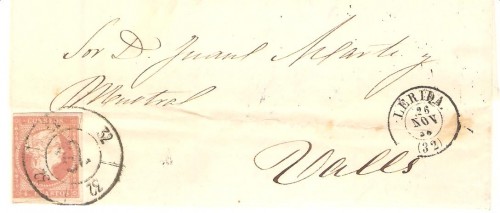 Sor D. Juan Marti y
Montral
Valls
LERIDA
26
NOV
(32)
32
32